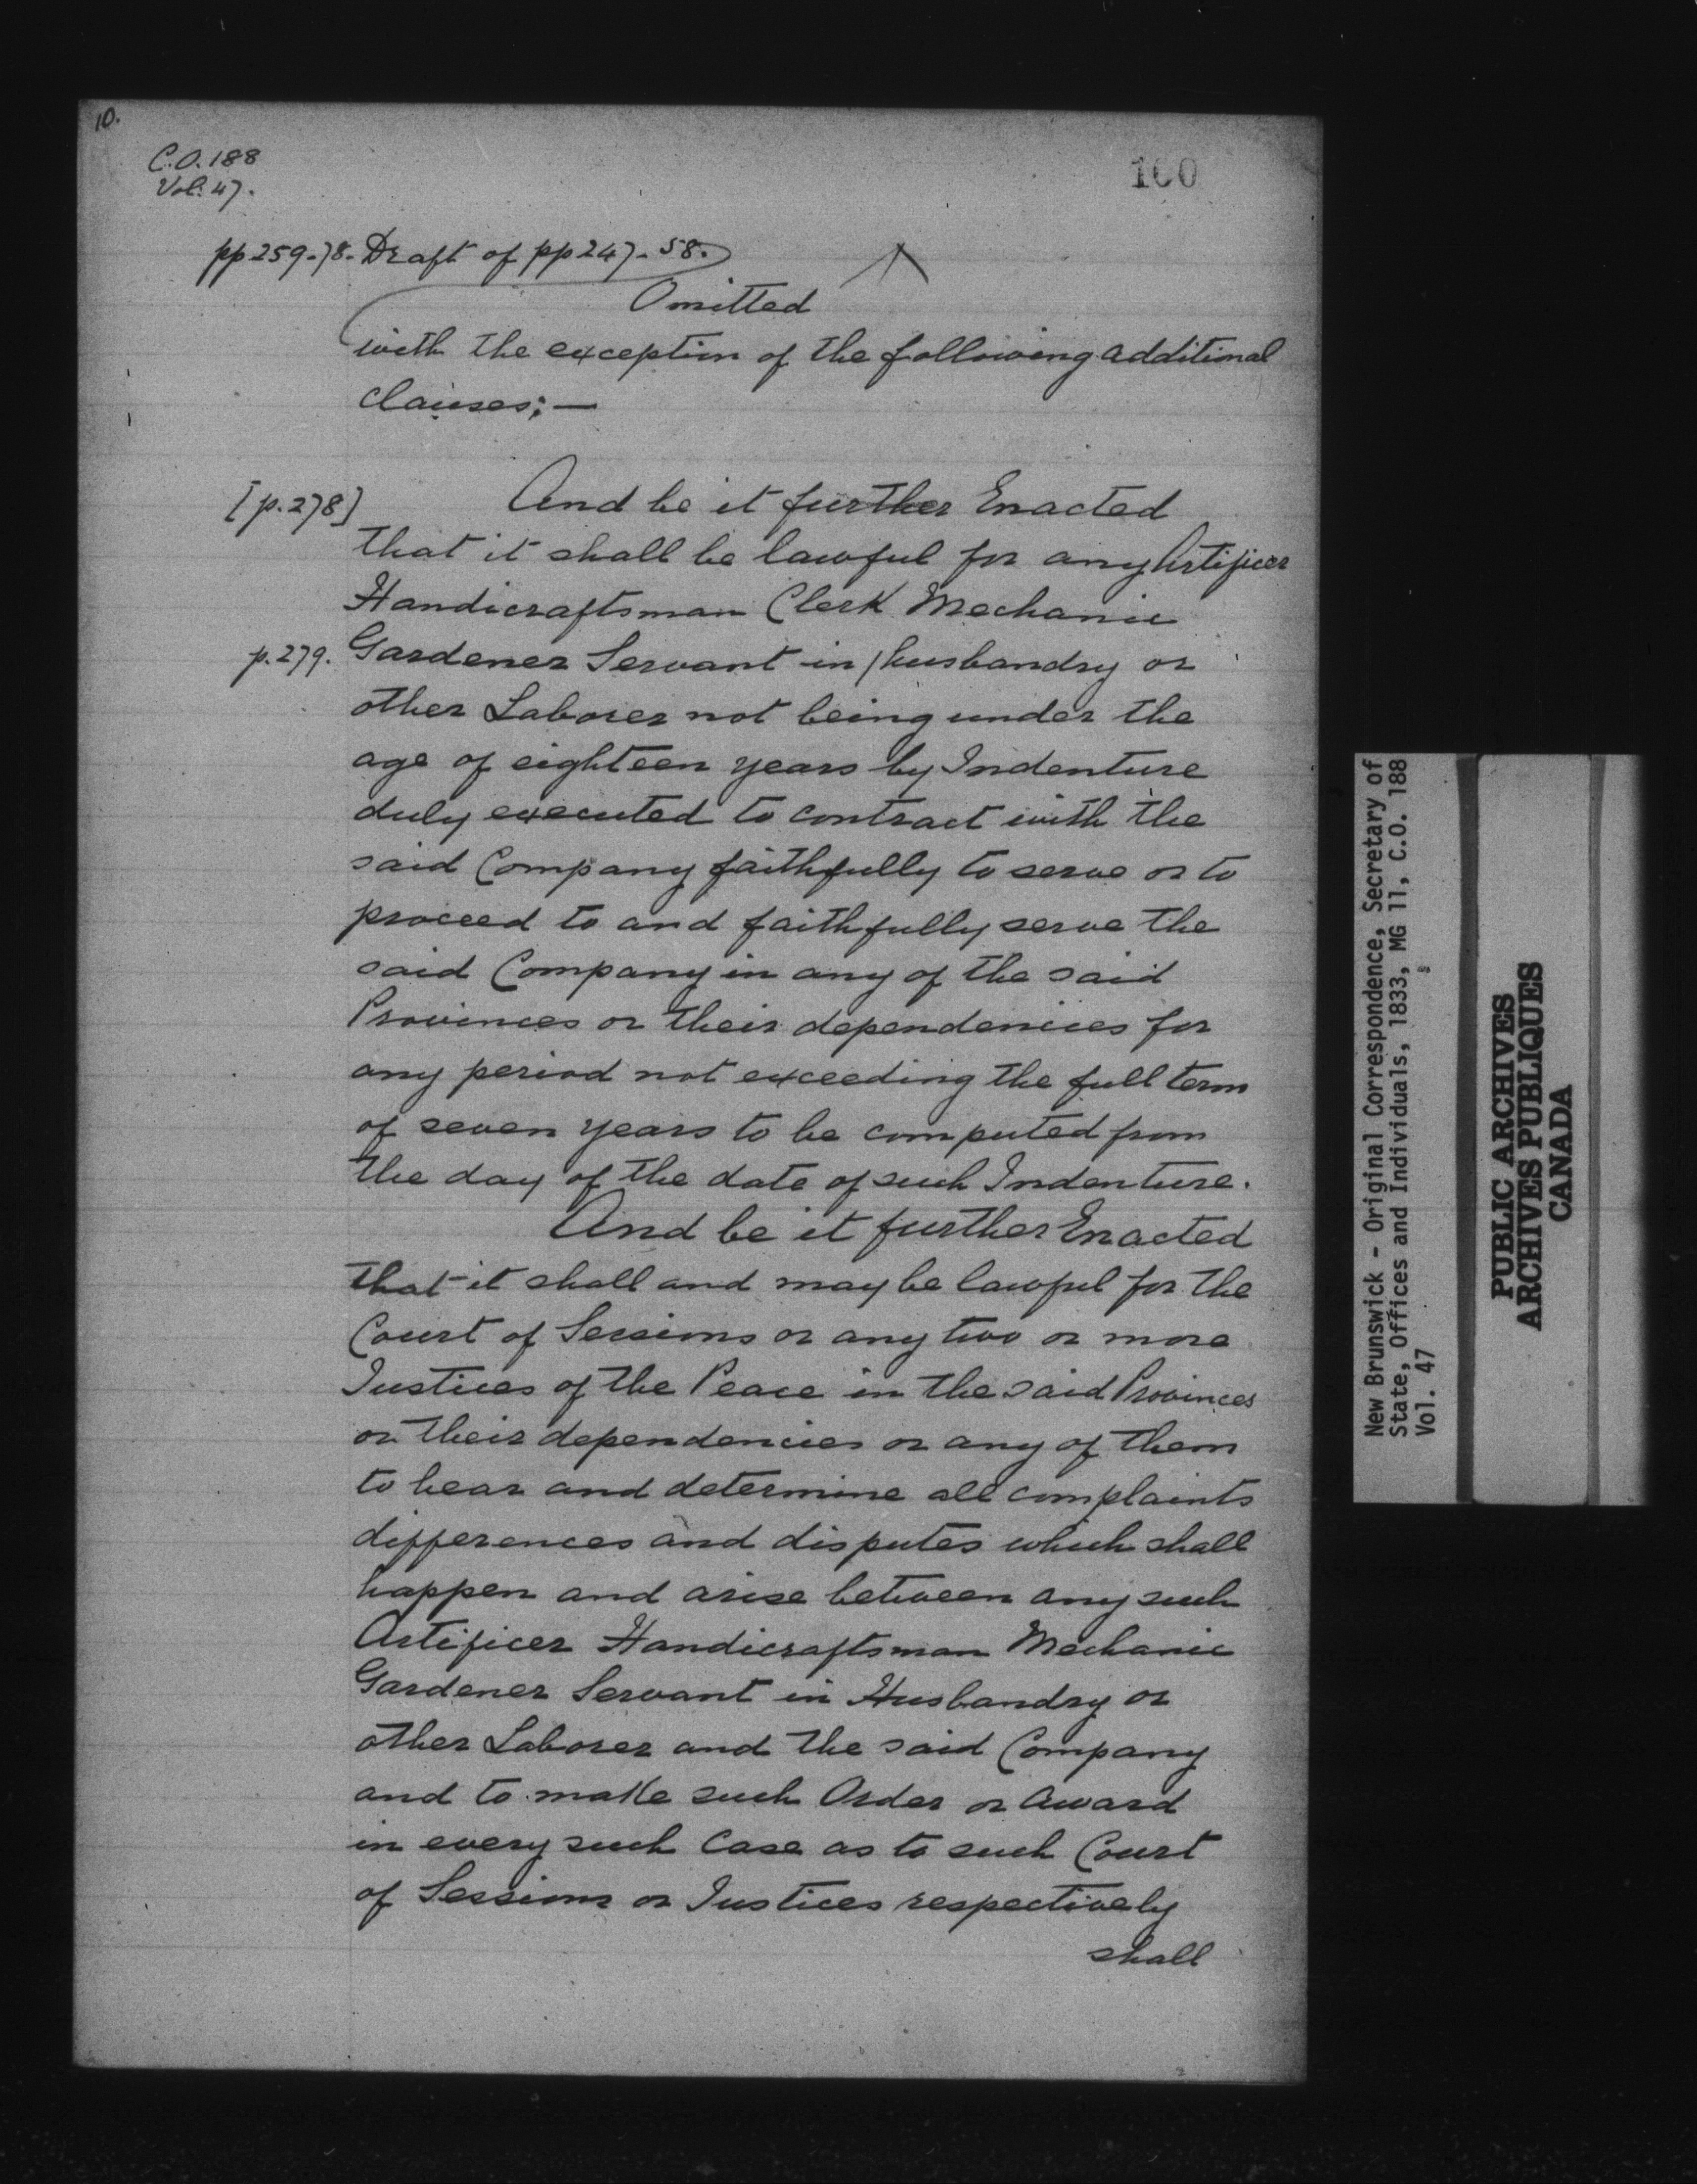 10.
C.O. 188
Vol. 47.
100
pp 259-78. Draft of pp 247-58.
Omitted
with the exception of the following additional
clauses; —
[p.278] And be it further Enacted
that it shall be lawful for any Artificer
Handicraftsman Clerk Mechanic
p.279. Gardener Servant in / husbandry or
other Laborer not being under the
age of eighteen years by Indenture
duly executed to contract with the
said Company faithfully to serve or to
proceed to and faithfully serve the
said Company in any of the said
Provinces or their dependencies for
any period not exceeding the full term
of seven years to be computed from
the day of the date of such Indenture.
And be it further Enacted
that it shall and may be lawful for the
Court of Sessions or any two or more
Justices of the Peace in the said Provinces
or their dependencies or any of them
to hear and determine all complaints
differences and disputes which shall
happen and arise between any such
Artificer Handicraftsman Mechanic
Gardener Servant in Husbandry or
other Laborer and the said Company
and to make such Order or Award
in every such Case as to such Court
of Sessions or Justices respectively
shall
New Brunswick - Original Correspondence, Secretary of
State, Offices and Individuals, 1833, MG 11, C.O. 188
Vol. 47
PUBLIC ARCHIVES
ARCHIVES PUBLIQUES
CANADA